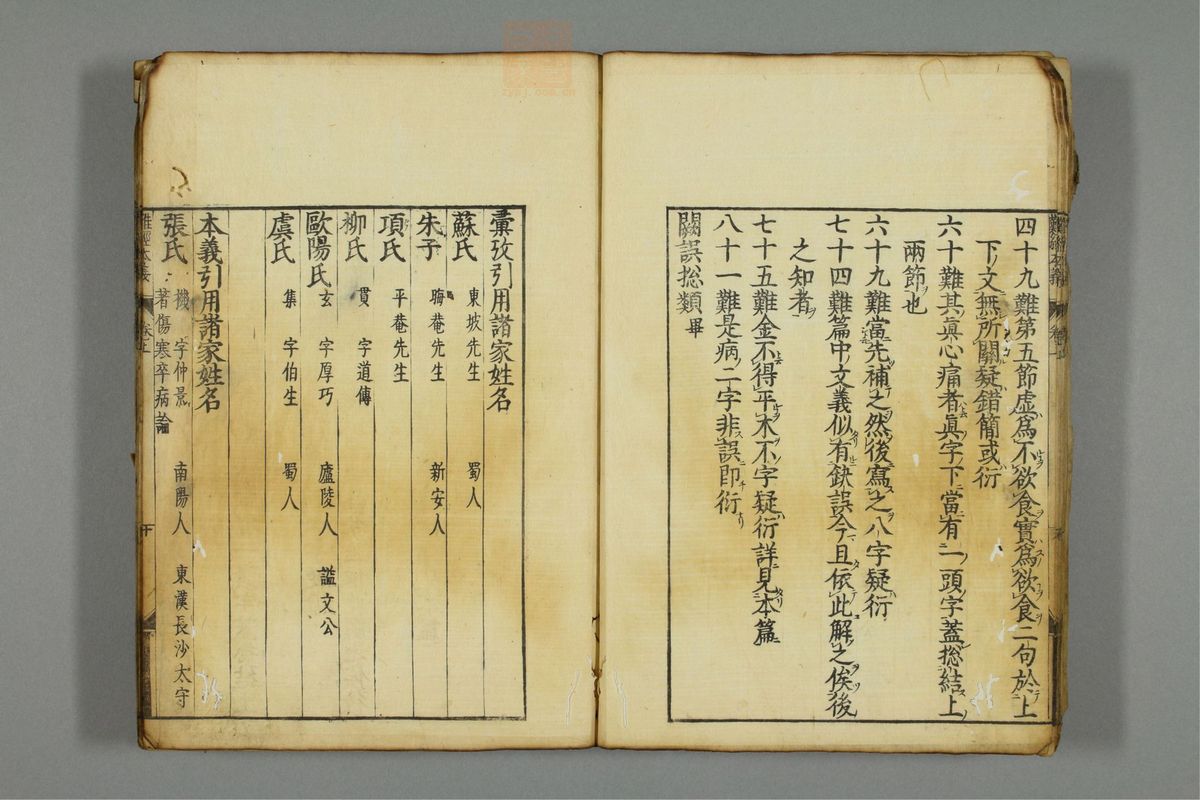 四十九難第五節虚爲不欲食實爲欲食二句於上
下文無所關疑錯簡或衍
六十難其眞心痛者眞字下當有一頭字蓋捴結上
兩節也
六十九難當先補之然後寫之八字疑衍
七十四難篇中文義似有缺誤今且依此解之俟後
之知者
七十五難金不得平木不字疑衍詳見本篇
八十一難是病二字非誤即衍
闕誤捴類畢
彙攷引用諸家姓名
蘇氏 東坡先生 蜀人
朱子 晦菴先生 新安人
項氏 平菴先生
柳氏 貫 字道傳
歐陽氏 玄 字厚巧 廬陵人 謚文公
虞氏 集 字伯生 蜀人
本義引用諸家姓名
張氏 機 字仲景 南陽人 東漢長沙太守
著傷寒卒病論
zypj.com.cn